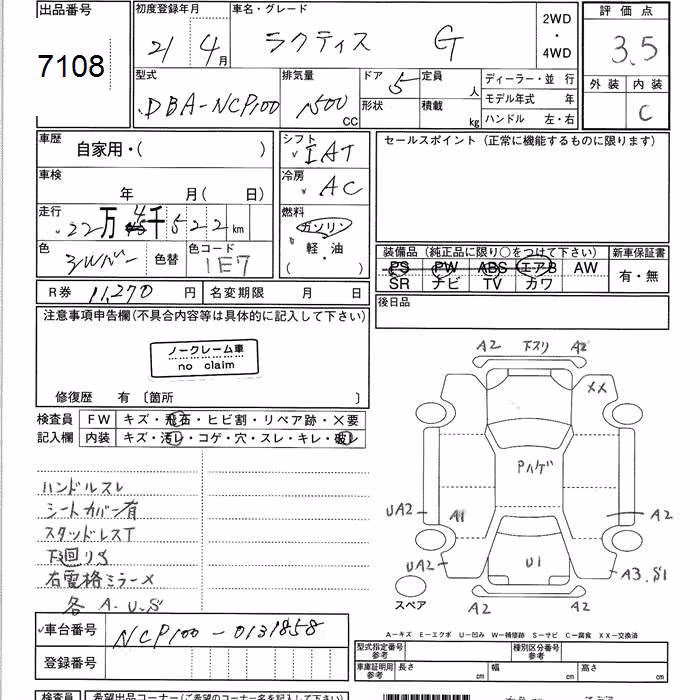 出品番号 初度登録年月 車名・グレード 2WD・4WD 評価点
7108 21年4月 ラクティス G 3.5
型式 排気量 ドア 5 定員 人 ディーラー・並行 外装 内装
DBA-NCP100 1500 CC 形状 積載 kg モデル年式 年 C
ハンドル 左・右
車歴 自家用・( ) シフト IAT セールスポイント (正常に機能するものに限ります)
車検 年 月( 日) 冷房 AC
走行 22万4千522km 燃料 ガソリン・軽・油 ( )
色 シルバー 色替 色コード 1E7
装備品 (純正品に限り○をつけて下さい) 新車保証書
PS PW ABS エアB AW 有・無
SR ナビ TV カワ
R券 11,270円 名変期限 月 日 後日品
注意事項申告欄(不具合内容等は具体的に記入して下さい)
ノークレーム車
no claim
修復歴 有 〔箇所 〕
検査員 FW キズ・飛石・ヒビ割・リペア跡・×要
記入欄 内装 キズ・汚レ・コゲ・穴・スレ・キレ・破レ
ハンドルスレ
シートカバー有
スタッドレスT
下廻りS
右電格ミラー×
各A.U.S
A2 下スリ A2
XX
Pハゲ
UA2 A1 A2
UA2 U1 A3.S1
A2 A2
スペア
車台番号 NCP100-0131858
登録番号
A-キズ E-エクボ U-凹み W-補修跡 S-サビ C-腐食 XX-交換済
型式指定番号 参考 種別区分番号 参考
車庫証明用 参考 長さ cm 幅 cm 高さ cm
検査員 希望出品コーナー(ご希望のコーナー名を記入して下さい)